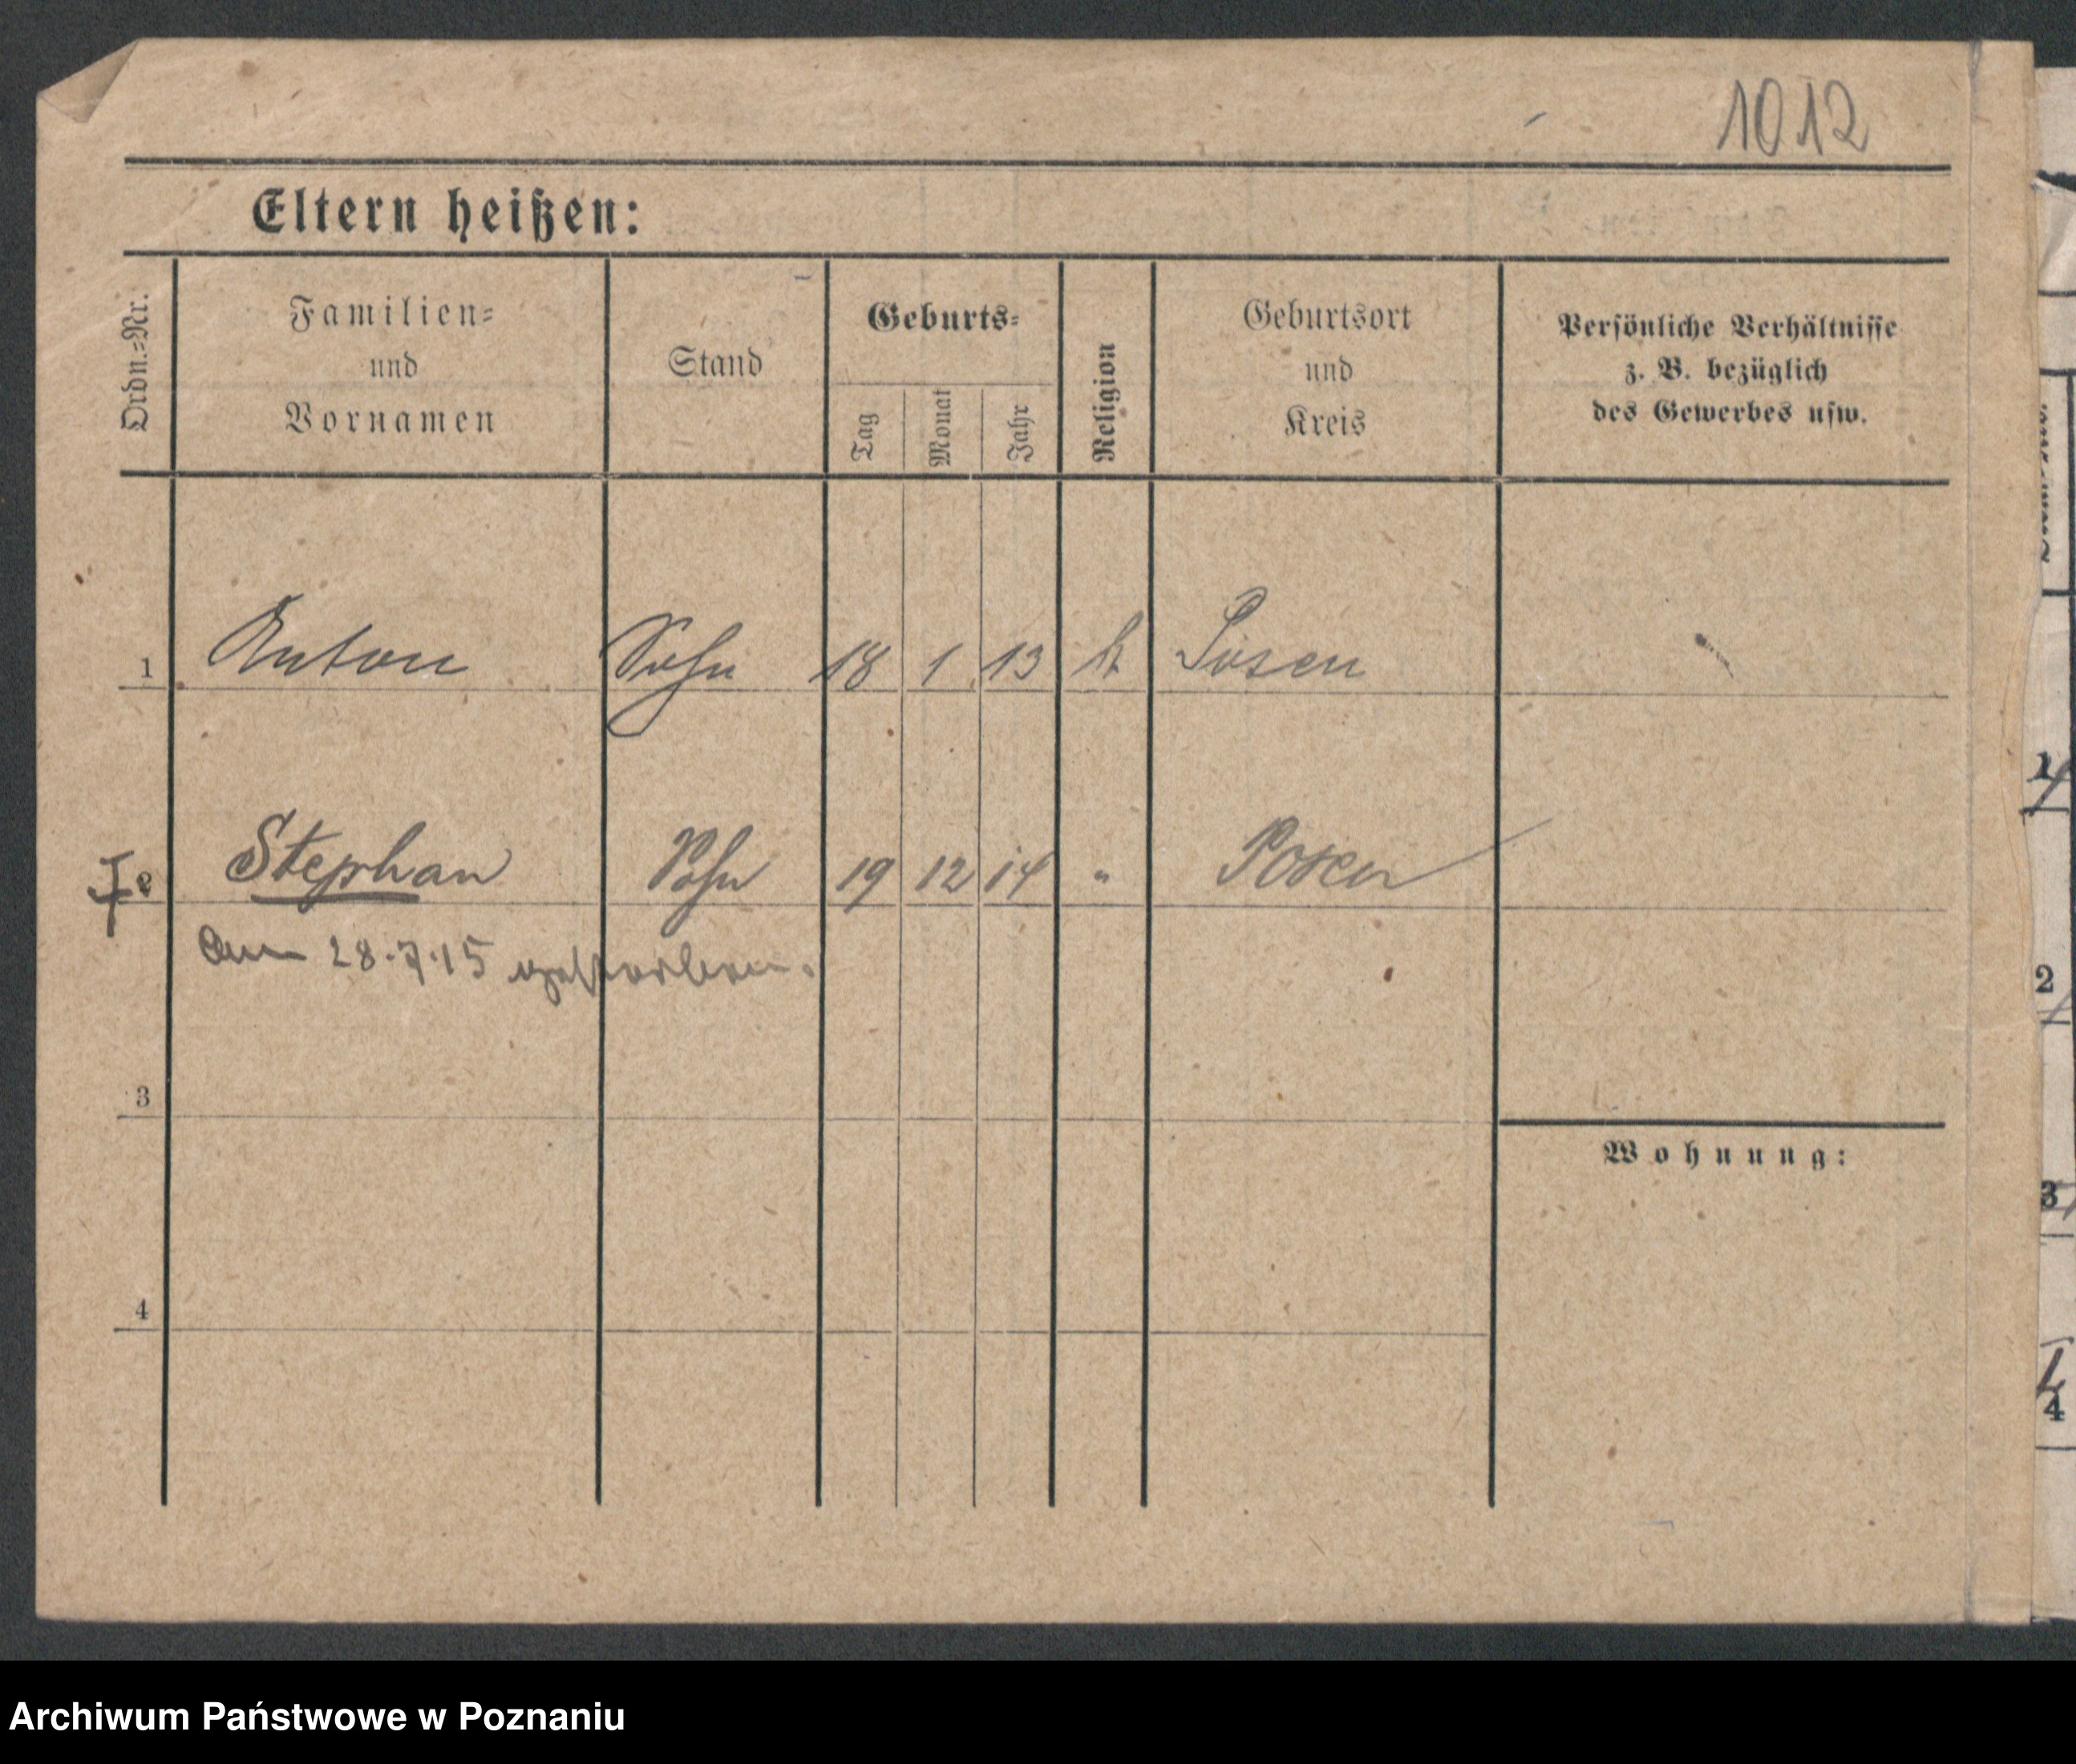 1012
Eltern heißen:
Ordn.=Nr.
Familien=
und
Vornamen
Stand
Geburts=
Tag
Monat
Jahr
Religion
Geburtsort
und
Kreis
Persönliche Verhältnisse
z. B. bezüglich
des Gewerbes usw.
1 Anton Sohn 18 1 13 k Posen
2 Stephan Sohn 19 12 14 " Posen
Am 28.7.15 gestorben.
3
Wohnung:
4
2
3
4
Archiwum Państwowe w Poznaniu